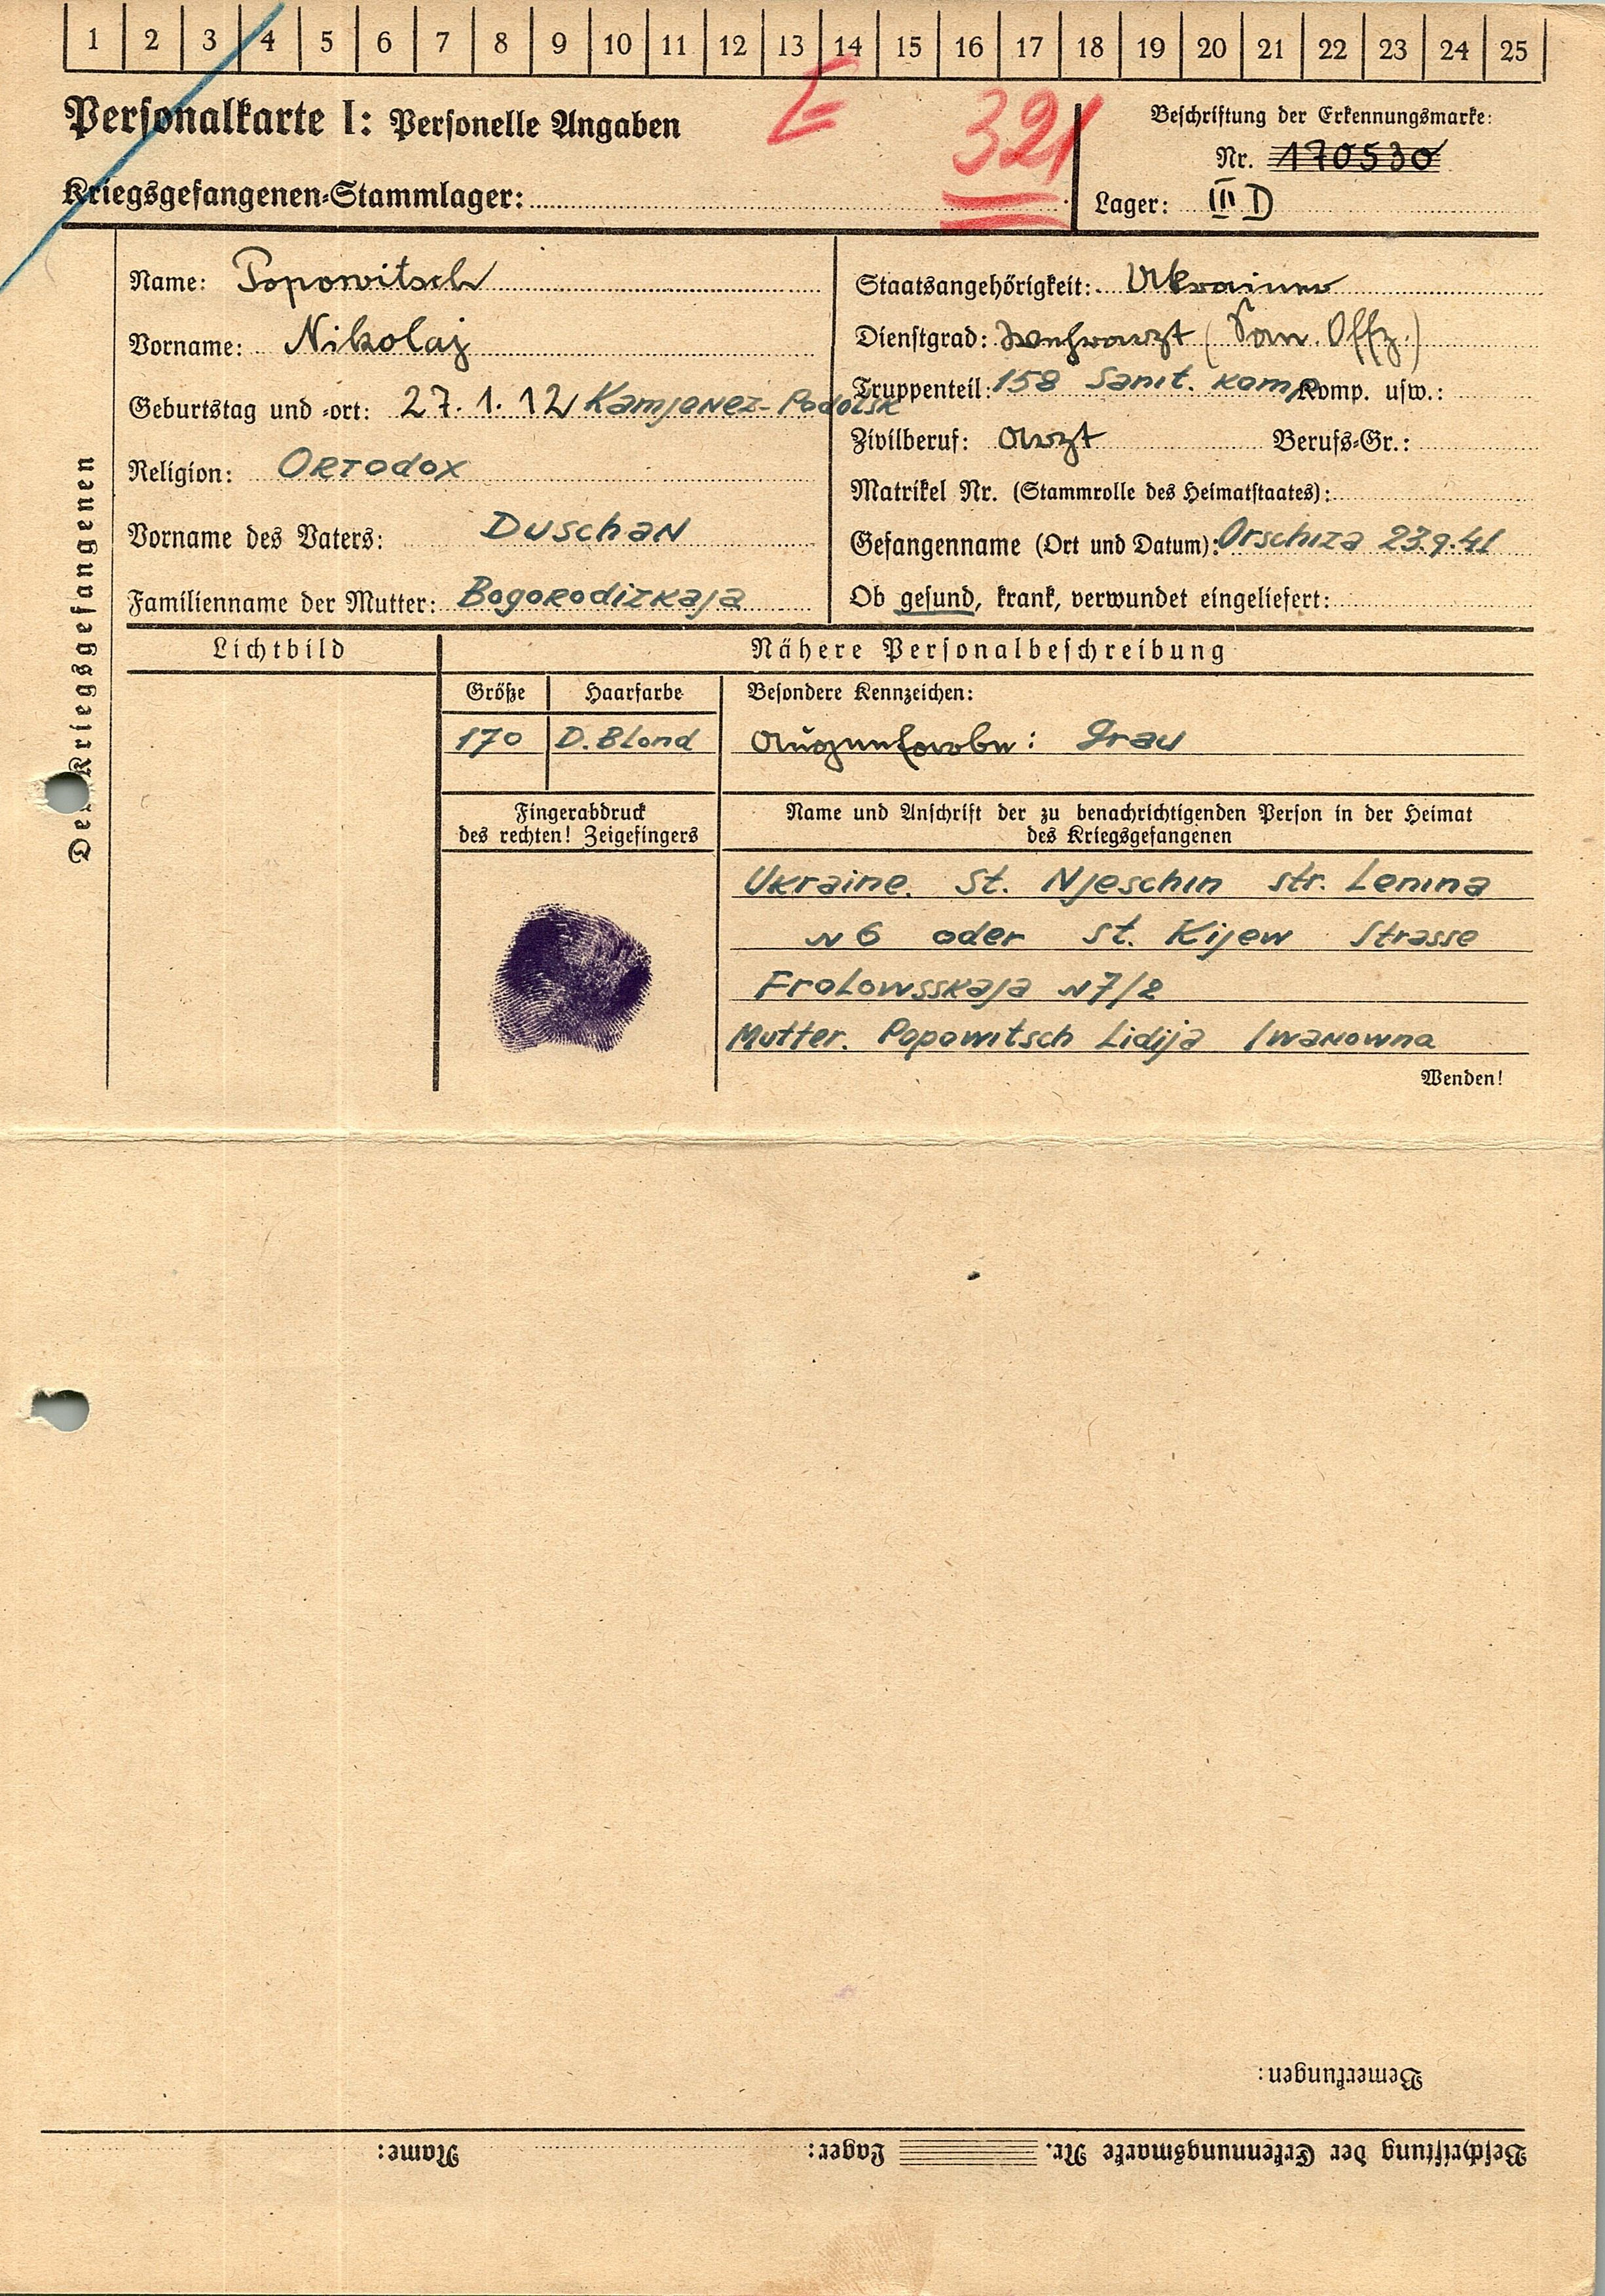 1 2 3 4 5 6 7 8 9 10 11 12 13 14 15 16 17 18 19 20 21 22 23 24 25
Personalkarte I: Personelle Angaben
E
321
Beschriftung der Erkennungsmarke:
Nr. 170530
Kriegsgefangenen-Stammlager:
Lager: III D
Des Kriegsgefangenen
Name: Popowitsch
Vorname: Nikolaj
Geburtstag und -ort: 27.1.12 Kamjenez-Podolsk
Religion: Ortodox
Vorname des Vaters: Duschan
Familienname der Mutter: Bogorodizkaja
Staatsangehörigkeit: Ukrainer
Dienstgrad: Wehrarzt (San. Offz.)
Truppenteil: 158 Sanit. komp Komp. usw.:
Zivilberuf: Arzt Berufs-Gr.:
Matrikel Nr. (Stammrolle des Heimatstaates):
Gefangenname (Ort und Datum): Orschiza 23.9.41
Ob gesund, krank, verwundet eingeliefert:
Lichtbild
Nähere Personalbeschreibung
Größe Haarfarbe Besondere Kennzeichen:
170 D. Blond Augenfarbe: Grau
Fingerabdruck
des rechten! Zeigefingers
Name und Anschrift der zu benachrichtigenden Person in der Heimat
des Kriegsgefangenen
Ukraine. St. Njeschin str. Lenina
N 6 oder St. Kijew Strasse
Frolowsskaja N 7/2
Mutter. Popowitsch Lidija Iwanowna
Wenden!
Bemerkungen:
Beschriftung der Erkennungsmarke Nr. Lager: Name: